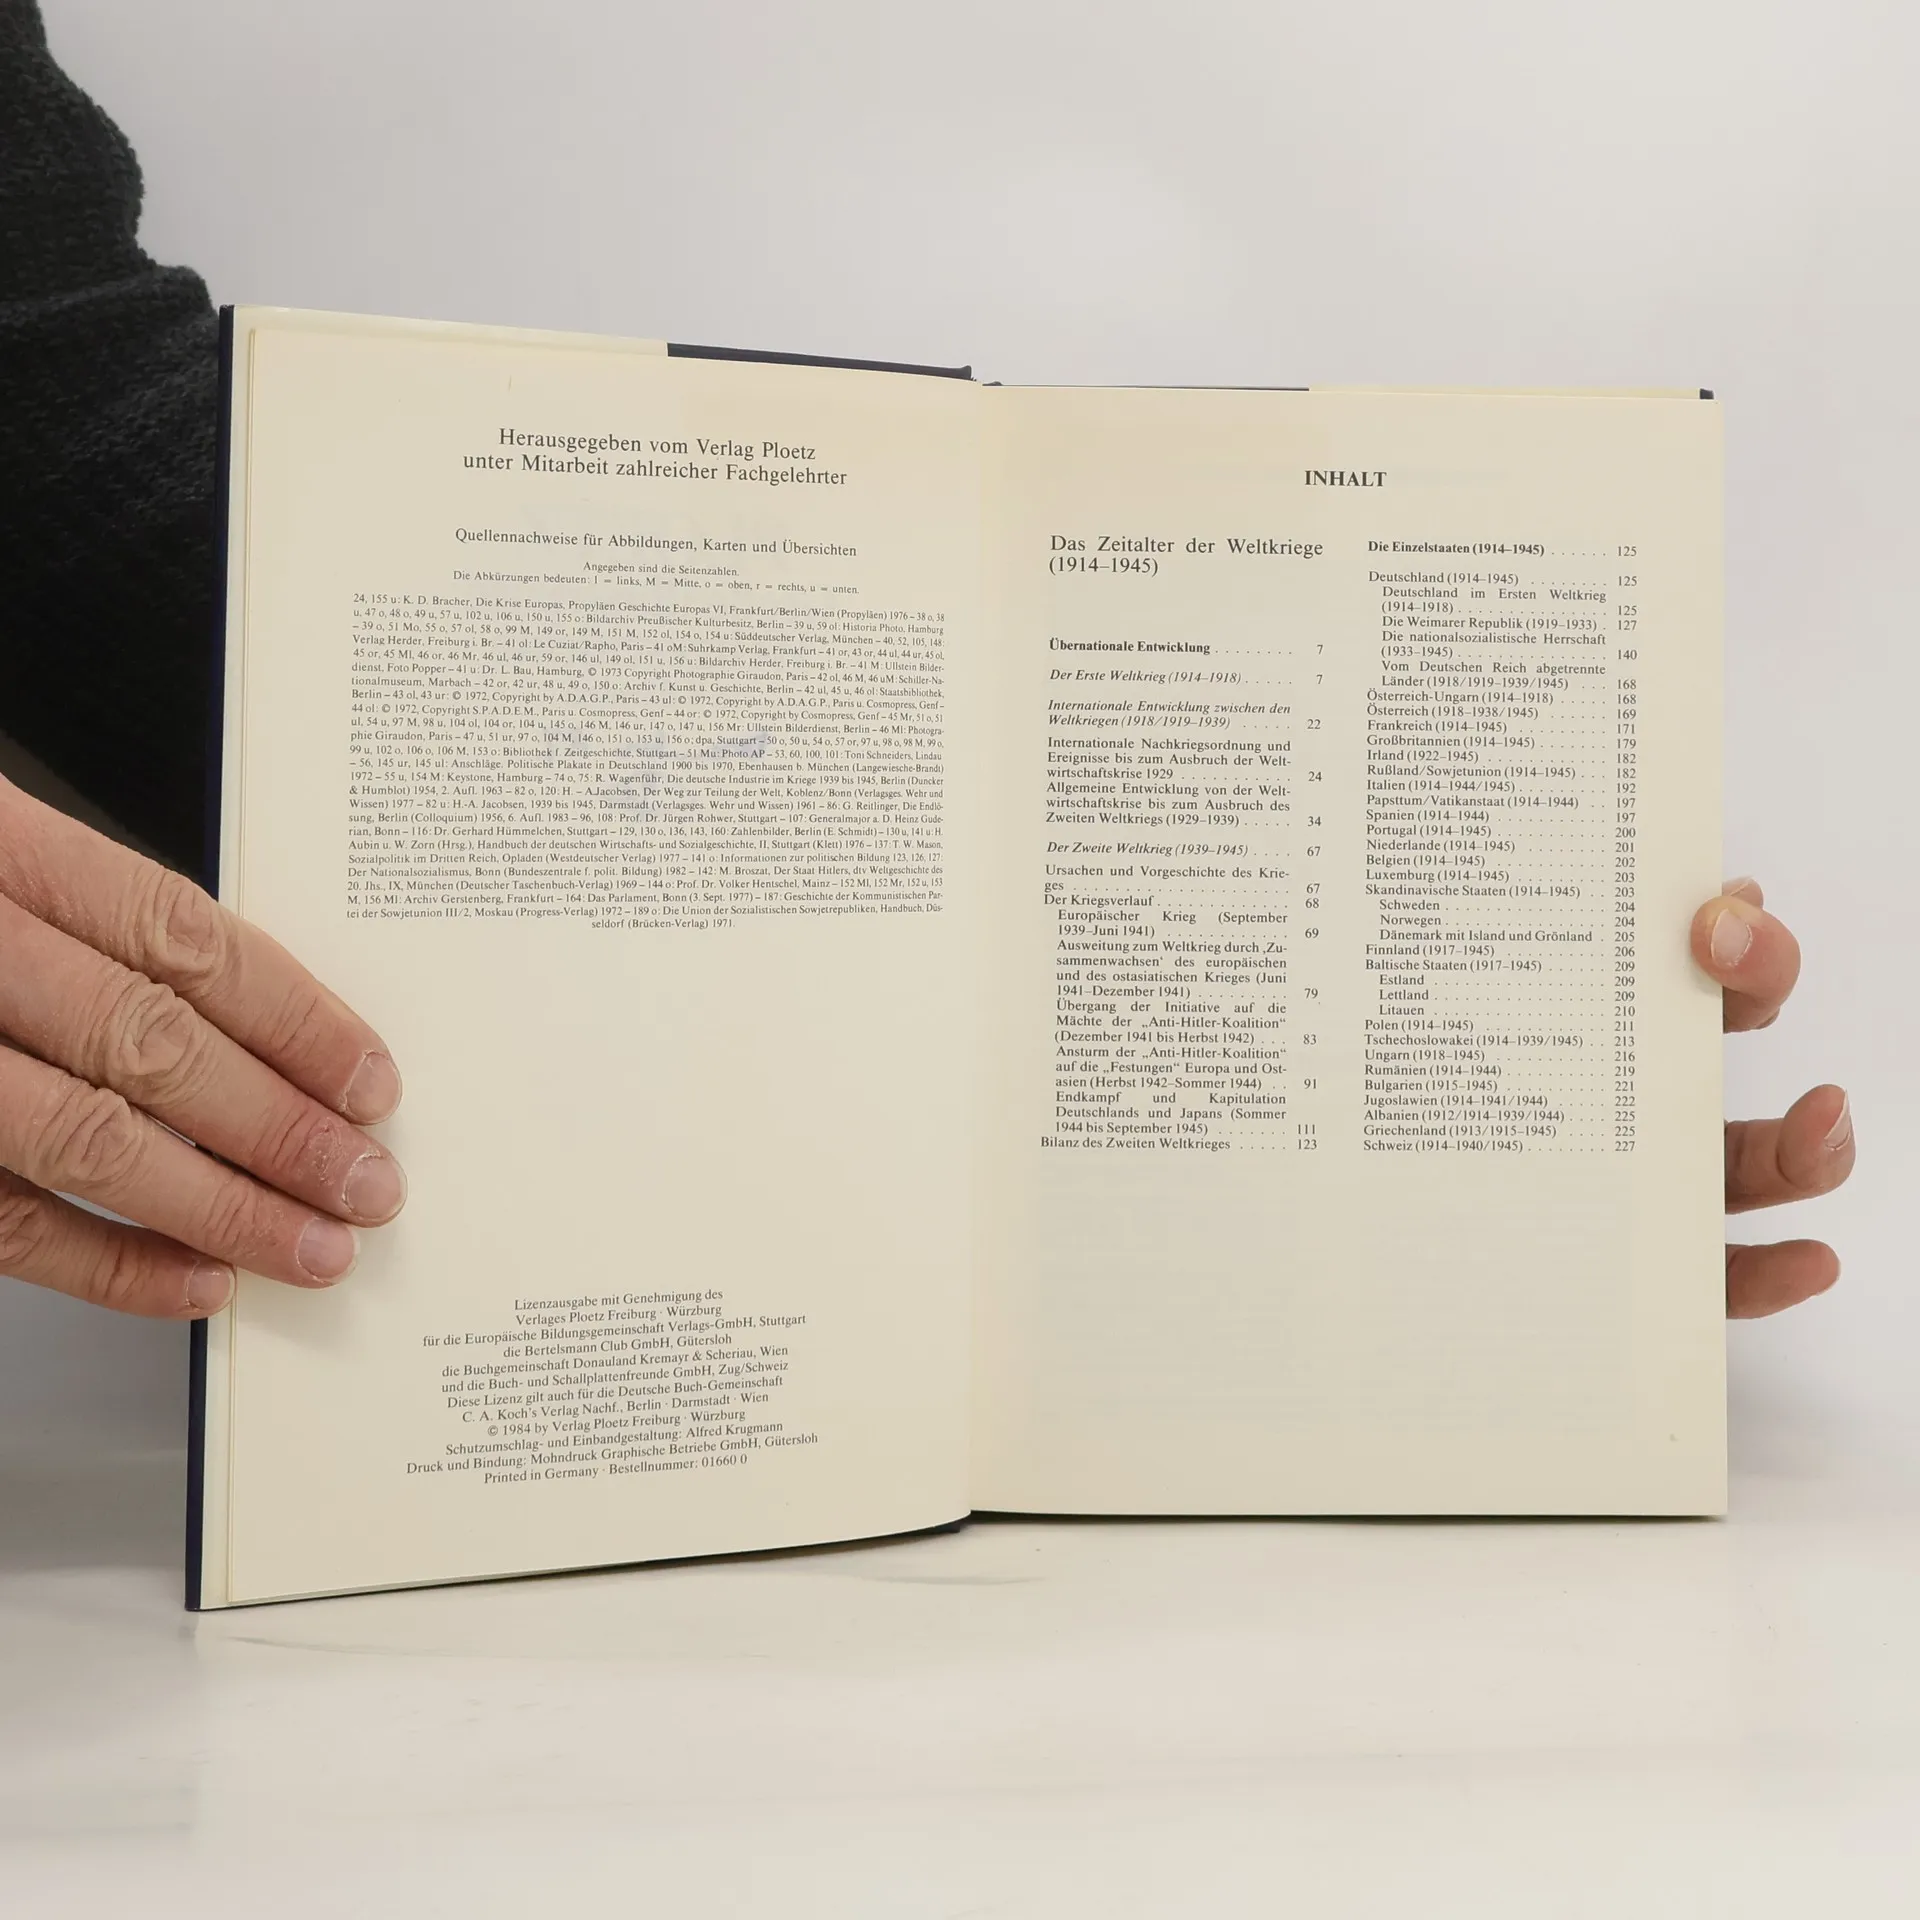 Herausgegeben vom Verlag Ploetz
unter Mitarbeit zahlreicher Fachgelehrter
Quellennachweise für Abbildungen, Karten und Übersichten
Angegeben sind die Seitenzahlen.
Die Abkürzungen bedeuten: l = links, M = Mitte, o = oben, r = rechts, u = unten.
24, 155 u: K. D. Bracher, Die Krise Europas, Propyläen Geschichte Europas VI, Frankfurt/Berlin/Wien (Propyläen) 1976 – 38 o, 38
u, 47 o, 48 o, 49 u, 57 u, 102 u, 106 u, 150 u, 155 o: Bildarchiv Preußischer Kulturbesitz, Berlin – 39 u, 59 ol: Historia Photo, Hamburg
– 39 o, 51 Mo, 55 o, 57 ol, 58 o, 99 M, 149 or, 149 M, 151 M, 152 ol, 154 o, 154 u: Süddeutscher Verlag, München – 40, 52, 105, 148:
Verlag Herder, Freiburg i. Br. – 41 ol: Le Cuziat/Rapho, Paris – 41 oM: Suhrkamp Verlag, Frankfurt – 41 or, 43 or, 44 ul, 44 ur, 45 ol,
45 or, 45 Ml, 46 or, 46 Mr, 46 ul, 46 ur, 59 or, 146 ul, 149 ol, 151 u, 156 u: Bildarchiv Herder, Freiburg i. Br. – 41 M: Ullstein Bilder-
dienst, Foto Popper – 41 u: Dr. L. Bau, Hamburg, © 1973 Copyright Photographie Giraudon, Paris – 42 ol, 46 M, 46 uM: Schiller-Na-
tionalmuseum, Marbach – 42 or, 42 ur, 48 u, 49 o, 150 o: Archiv f. Kunst u. Geschichte, Berlin – 42 ul, 45 u, 46 ol: Staatsbibliothek,
Berlin – 43 ol, 43 ur: © 1972, Copyright by A.D.A.G.P., Paris – 43 ul: © 1972, Copyright by A.D.A.G.P., Paris u. Cosmopress, Genf –
44 ol: © 1972, Copyright S.P.A.D.E.M., Paris u. Cosmopress, Genf – 44 or: © 1972, Copyright by Cosmopress, Genf – 45 Mr, 51 o, 51
ul, 54 u, 97 M, 98 u, 104 ol, 104 or, 104 u, 145 o, 146 M, 146 ur, 147 o, 147 u, 156 Mr: Ullstein Bilderdienst, Berlin – 46 Ml: Photogra-
phie Giraudon, Paris – 47 u, 51 ur, 97 o, 104 M, 146 o, 151 o, 153 u, 156 o: dpa, Stuttgart – 50 o, 50 u, 54 o, 57 or, 97 u, 98 o, 98 M, 99 o,
99 u, 102 o, 106 o, 106 M, 153 o: Bibliothek f. Zeitgeschichte, Stuttgart – 51 Mu: Photo AP – 53, 60, 100, 101: Toni Schneiders, Lindau
– 56, 145 ur, 145 ul: Anschläge. Politische Plakate in Deutschland 1900 bis 1970, Ebenhausen b. München (Langewiesche-Brandt)
1972 – 55 u, 154 M: Keystone, Hamburg – 74 o, 75: R. Wagenführ, Die deutsche Industrie im Kriege 1939 bis 1945, Berlin (Duncker
& Humblot) 1954, 2. Aufl. 1963 – 82 o, 120: H. – A.Jacobsen, Der Weg zur Teilung der Welt, Koblenz/Bonn (Verlagsges. Wehr und
Wissen) 1977 – 82 u: H.-A. Jacobsen, 1939 bis 1945, Darmstadt (Verlagsges. Wehr und Wissen) 1961 – 86: G. Reitlinger, Die Endlö-
sung, Berlin (Colloquium) 1956, 6. Aufl. 1983 – 96, 108: Prof. Dr. Jürgen Rohwer, Stuttgart – 107: Generalmajor a. D. Heinz Gude-
rian, Bonn – 116: Dr. Gerhard Hümmelchen, Stuttgart – 129, 130 o, 136, 143, 160: Zahlenbilder, Berlin (E. Schmidt) – 130 u, 141 u: H.
Aubin u. W. Zorn (Hrsg.), Handbuch der deutschen Wirtschafts- und Sozialgeschichte, II, Stuttgart (Klett) 1976 – 137: T. W. Mason,
Sozialpolitik im Dritten Reich, Opladen (Westdeutscher Verlag) 1977 – 141 o: Informationen zur politischen Bildung 123, 126, 127:
Der Nationalsozialismus, Bonn (Bundeszentrale f. polit. Bildung) 1982 – 142: M. Broszat, Der Staat Hitlers, dtv Weltgeschichte des
20. Jhs., IX, München (Deutscher Taschenbuch-Verlag) 1969 – 144 o: Prof. Dr. Volker Hentschel, Mainz – 152 Ml, 152 Mr, 152 u, 153
M, 156 Ml: Archiv Gerstenberg, Frankfurt – 164: Das Parlament, Bonn (3. Sept. 1977) – 187: Geschichte der Kommunistischen Par-
tei der Sowjetunion III/2, Moskau (Progress-Verlag) 1972 – 189 o: Die Union der Sozialistischen Sowjetrepubliken, Handbuch, Düs-
seldorf (Brücken-Verlag) 1971.
Lizenzausgabe mit Genehmigung des
Verlages Ploetz Freiburg · Würzburg
für die Europäische Bildungsgemeinschaft Verlags-GmbH, Stuttgart
die Bertelsmann Club GmbH, Gütersloh
die Buchgemeinschaft Donauland Kremayr & Scheriau, Wien
und die Buch- und Schallplattenfreunde GmbH, Zug/Schweiz
Diese Lizenz gilt auch für die Deutsche Buch-Gemeinschaft
C. A. Koch's Verlag Nachf., Berlin · Darmstadt · Wien
© 1984 by Verlag Ploetz Freiburg · Würzburg
Schutzumschlag- und Einbandgestaltung: Alfred Krugmann
Druck und Bindung: Mohndruck Graphische Betriebe GmbH, Gütersloh
Printed in Germany · Bestellnummer: 01660 0
INHALT
Das Zeitalter der Weltkriege
(1914–1945)
Übernationale Entwicklung . . . . . . . . 7
Der Erste Weltkrieg (1914–1918) . . . . . 7
Internationale Entwicklung zwischen den
Weltkriegen (1918/1919–1939) . . . . . 22
Internationale Nachkriegsordnung und
Ereignisse bis zum Ausbruch der Welt-
wirtschaftskrise 1929 . . . . . . . . . . . 24
Allgemeine Entwicklung von der Welt-
wirtschaftskrise bis zum Ausbruch des
Zweiten Weltkriegs (1929–1939) . . . . . 34
Der Zweite Weltkrieg (1939–1945) . . . . 67
Ursachen und Vorgeschichte des Krie-
ges . . . . . . . . . . . . . . . . . . . . . 67
Der Kriegsverlauf . . . . . . . . . . . . . 68
Europäischer Krieg (September
1939–Juni 1941) . . . . . . . . . . . . 69
Ausweitung zum Weltkrieg durch ‚Zu-
sammenwachsen‘ des europäischen
und des ostasiatischen Krieges (Juni
1941–Dezember 1941) . . . . . . . . . 79
Übergang der Initiative auf die
Mächte der „Anti-Hitler-Koalition“
(Dezember 1941 bis Herbst 1942) . . . 83
Ansturm der „Anti-Hitler-Koalition“
auf die „Festungen“ Europa und Ost-
asien (Herbst 1942–Sommer 1944) . . 91
Endkampf und Kapitulation
Deutschlands und Japans (Sommer
1944 bis September 1945) . . . . . . . 111
Bilanz des Zweiten Weltkrieges . . . . . 123
Die Einzelstaaten (1914–1945) . . . . . . 125
Deutschland (1914–1945) . . . . . . . . 125
Deutschland im Ersten Weltkrieg
(1914–1918) . . . . . . . . . . . . . . . 125
Die Weimarer Republik (1919–1933) . 127
Die nationalsozialistische Herrschaft
(1933–1945) . . . . . . . . . . . . . . . 140
Vom Deutschen Reich abgetrennte
Länder (1918/1919–1939/1945) . . . 168
Österreich-Ungarn (1914–1918) . . . . . 168
Österreich (1918–1938/1945) . . . . . . 169
Frankreich (1914–1945) . . . . . . . . . 171
Großbritannien (1914–1945) . . . . . . . 179
Irland (1922–1945) . . . . . . . . . . . . 182
Rußland/Sowjetunion (1914–1945) . . . 182
Italien (1914–1944/1945) . . . . . . . . 192
Papsttum/Vatikanstaat (1914–1944) . . 197
Spanien (1914–1944) . . . . . . . . . . . 197
Portugal (1914–1945) . . . . . . . . . . . 200
Niederlande (1914–1945) . . . . . . . . 201
Belgien (1914–1945) . . . . . . . . . . . 202
Luxemburg (1914–1945) . . . . . . . . . 203
Skandinavische Staaten (1914–1945) . . 203
Schweden . . . . . . . . . . . . . . . . 204
Norwegen . . . . . . . . . . . . . . . . 204
Dänemark mit Island und Grönland . 205
Finnland (1917–1945) . . . . . . . . . . 206
Baltische Staaten (1917–1945) . . . . . . 209
Estland . . . . . . . . . . . . . . . . . 209
Lettland . . . . . . . . . . . . . . . . . 209
Litauen . . . . . . . . . . . . . . . . . 210
Polen (1914–1945) . . . . . . . . . . . . 211
Tschechoslowakei (1914–1939/1945) . . 213
Ungarn (1918–1945) . . . . . . . . . . . 216
Rumänien (1914–1944) . . . . . . . . . . 219
Bulgarien (1915–1945) . . . . . . . . . . 221
Jugoslawien (1914–1941/1944) . . . . . 222
Albanien (1912/1914–1939/1944) . . . . 225
Griechenland (1913/1915–1945) . . . . 225
Schweiz (1914–1940/1945) . . . . . . . . 227